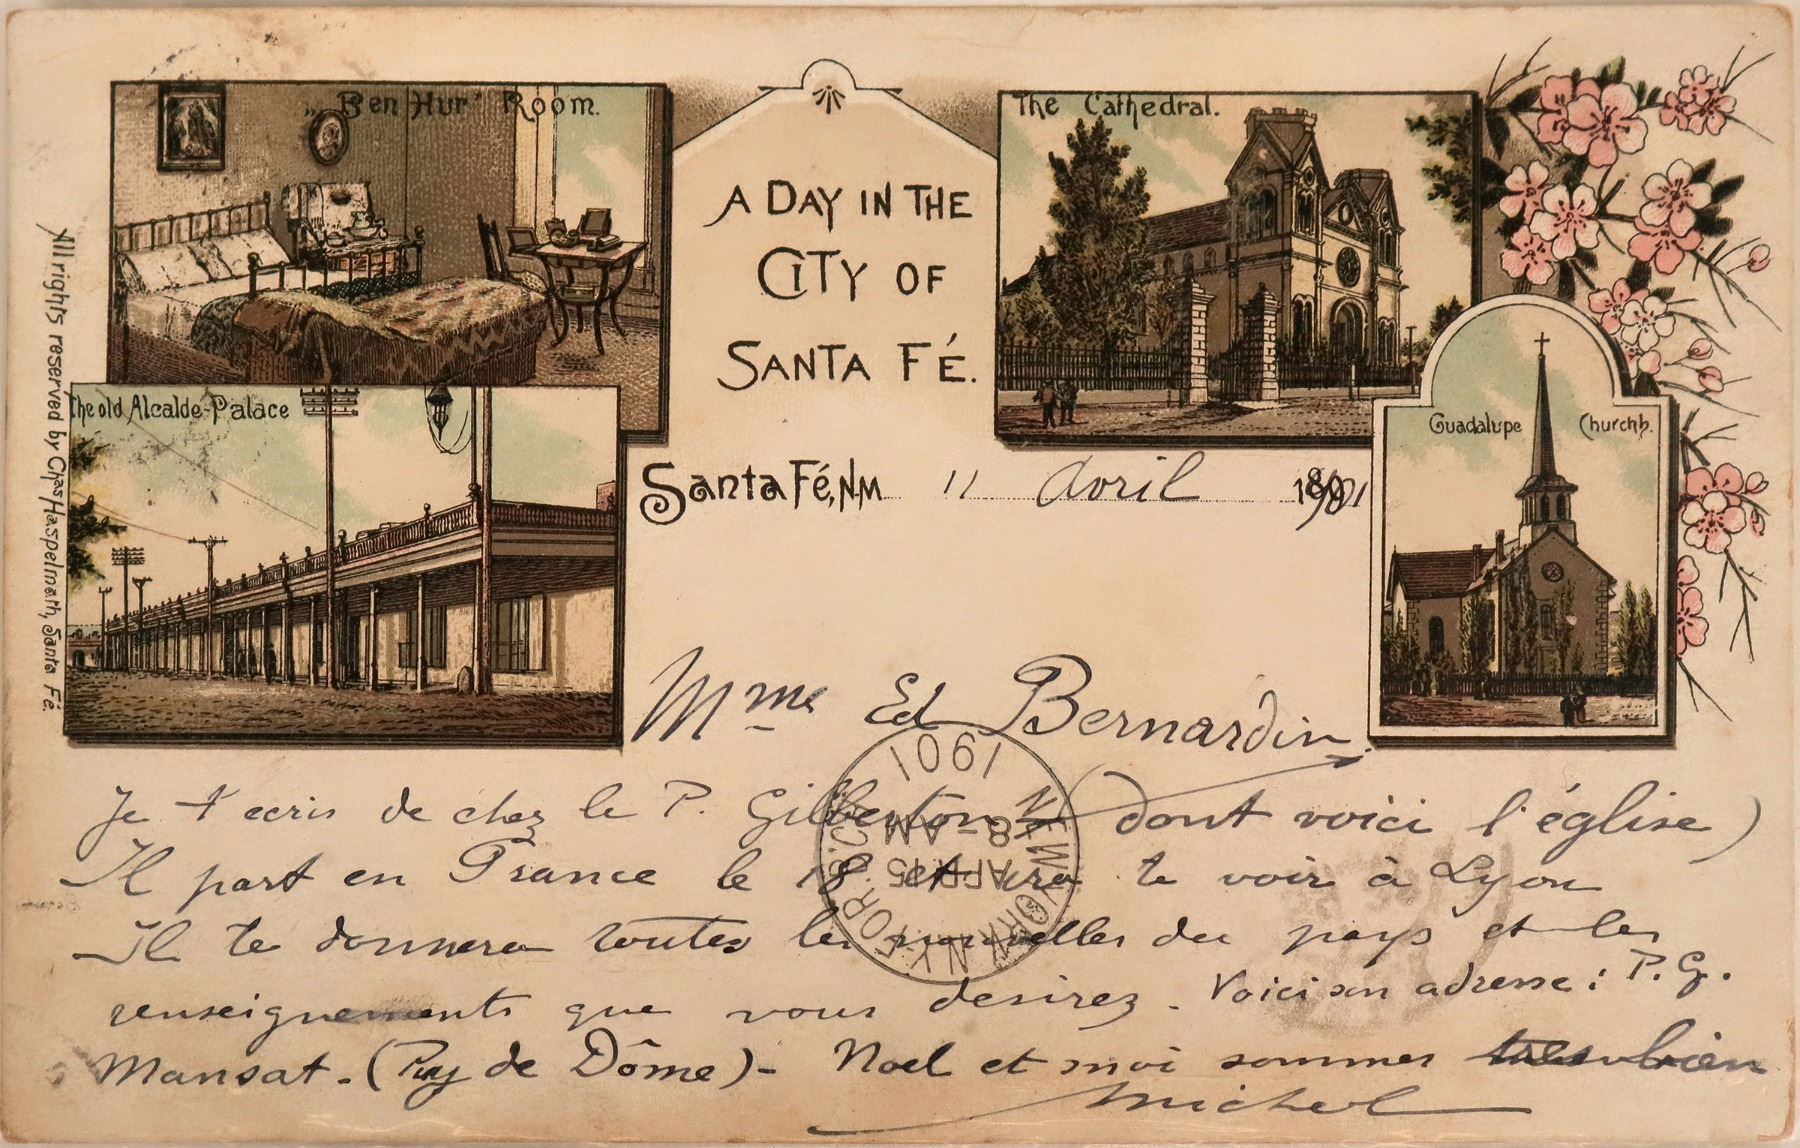 „Ben Hur" Room.
A DAY IN THE
CITY OF
SANTA FÉ.
The Cathedral.
The old Alcalde-Palace
Guadalupe Churchh.
All rights reserved by Chas Haspelmath, Santa Fé.
Santa Fé, N.M. 11 Avril 1901
Mme Ed Bernardin.
Je t'ecris de chez le P. Gilberton (dont voici l'église)
Il part en France le 18 et ira te voir à Lyon
Il te donnera toutes les nouvelles du pays et les
renseignements que vous desirez. Voici son adresse : P. G.
Mansat. (Puy de Dôme) - Noel et moi sommes tres bien
Michel
NEW YORK, N.Y. FOR.
APR 15
8-AM
1901